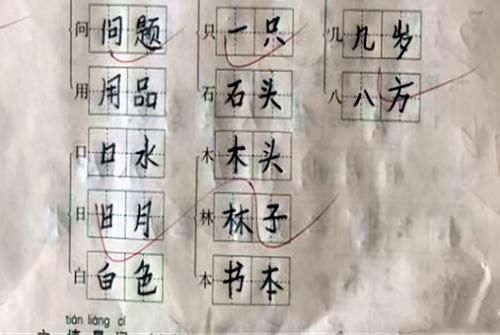 问 问题 只 一只 几 几岁
用 用品 石 石头 八 八方
口 口水 木 木头
日 日月 林 林子
白 白色 本 书本
tián liàng cí